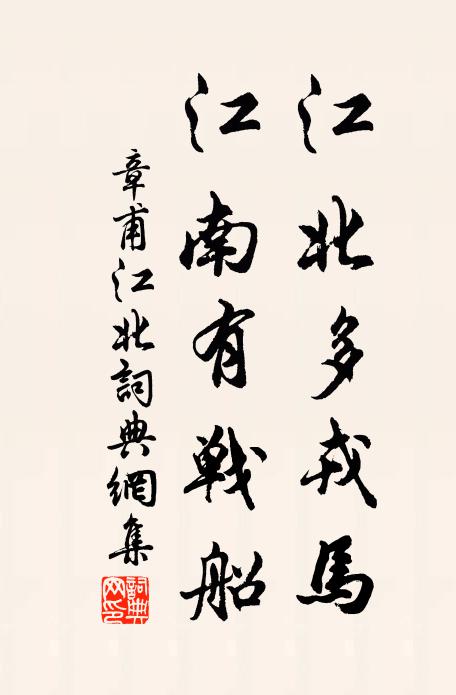 江北多戎马
江南有戦船
章甫江北詞典網集
詞典网印